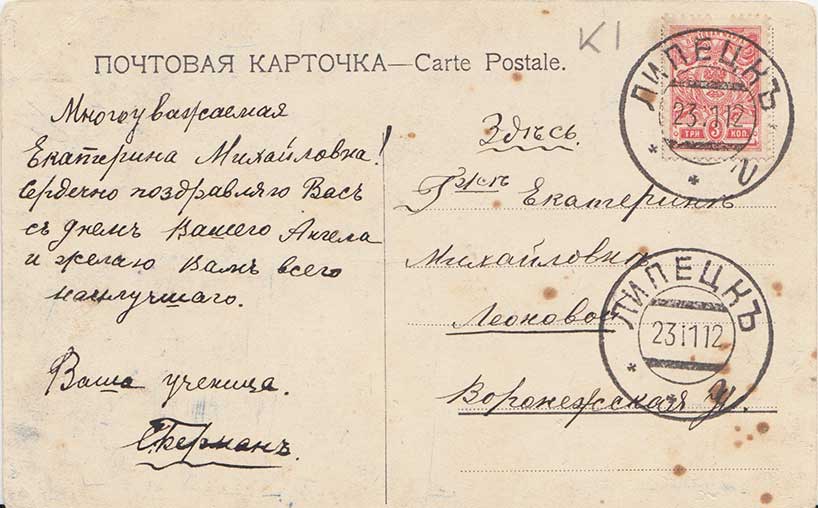 К1
ПОЧТОВАЯ КАРТОЧКА—Carte Postale.
Многоуважаемая
Екатерина Михайловна!
Сердечно поздравляю Васъ
съ днемъ Вашего Ангела
и желаю Вамъ всего
наилучшаго.
Ваша ученица.
Здѣсь.
Г-жѣ Екатеринѣ
Михайловнѣ
Леоновой
Воронежская у.
ТРИ 3 КОП
ЛИПЕЦКЪ
23 11 12
ЛИПЕЦКЪ
23 11 12